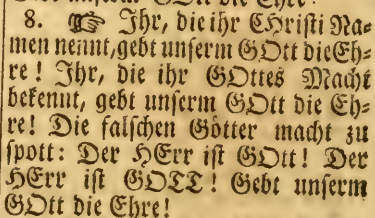 8. ☞ Ihr, die ihr CHristi Na=
men nennt, gebt unserm GOtt die Eh=
re! Ihr, die ihr GOttes Macht
bekennt, gebt unserm GOtt die Eh=
re! Die falschen Götter macht zu
spott: Der HErr ist GOtt! Der
HErr ist GOTT! Gebt unserm
GOtt die Ehre!